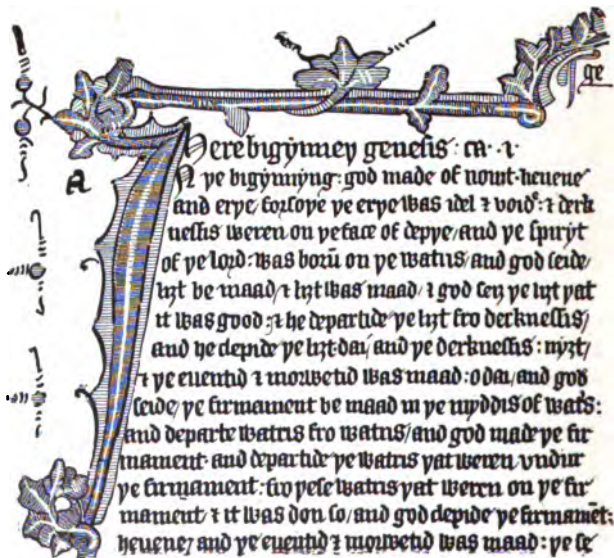 ge
Here bigynney genesis : ca · i ·
a
IN ye bigynnyng : god made of nouit · heuene
and erye / forsoye ye erye was idel ⁊ voide : ⁊ derk
nessis weren on ye face of depye / and ye spiryt
of ye lord : was borū on ye watris / and god seide /
liȝt be maad / ⁊ liȝt was maad / ⁊ god seiȝ ye liȝt yat
it was good : ⁊ he departide ye liȝt fro derknessis /
and he clepide ye liȝt · dai / and ye derknessis : nyȝt /
⁊ ye euentid ⁊ morwetid was maad : o dai / and god
seide / ye firmament be maad in ye myddis of watrs :
and departe watris fro watris / and god made ye fir
mament · and departide ye watris yat weren vndur
ye firmament : fro yese watris yat weren on ye fir
mamēt ⁊ it was don so / and god clepide ye firmamēt :
heuene / and ye euentid ⁊ morwetid was maad : ye se